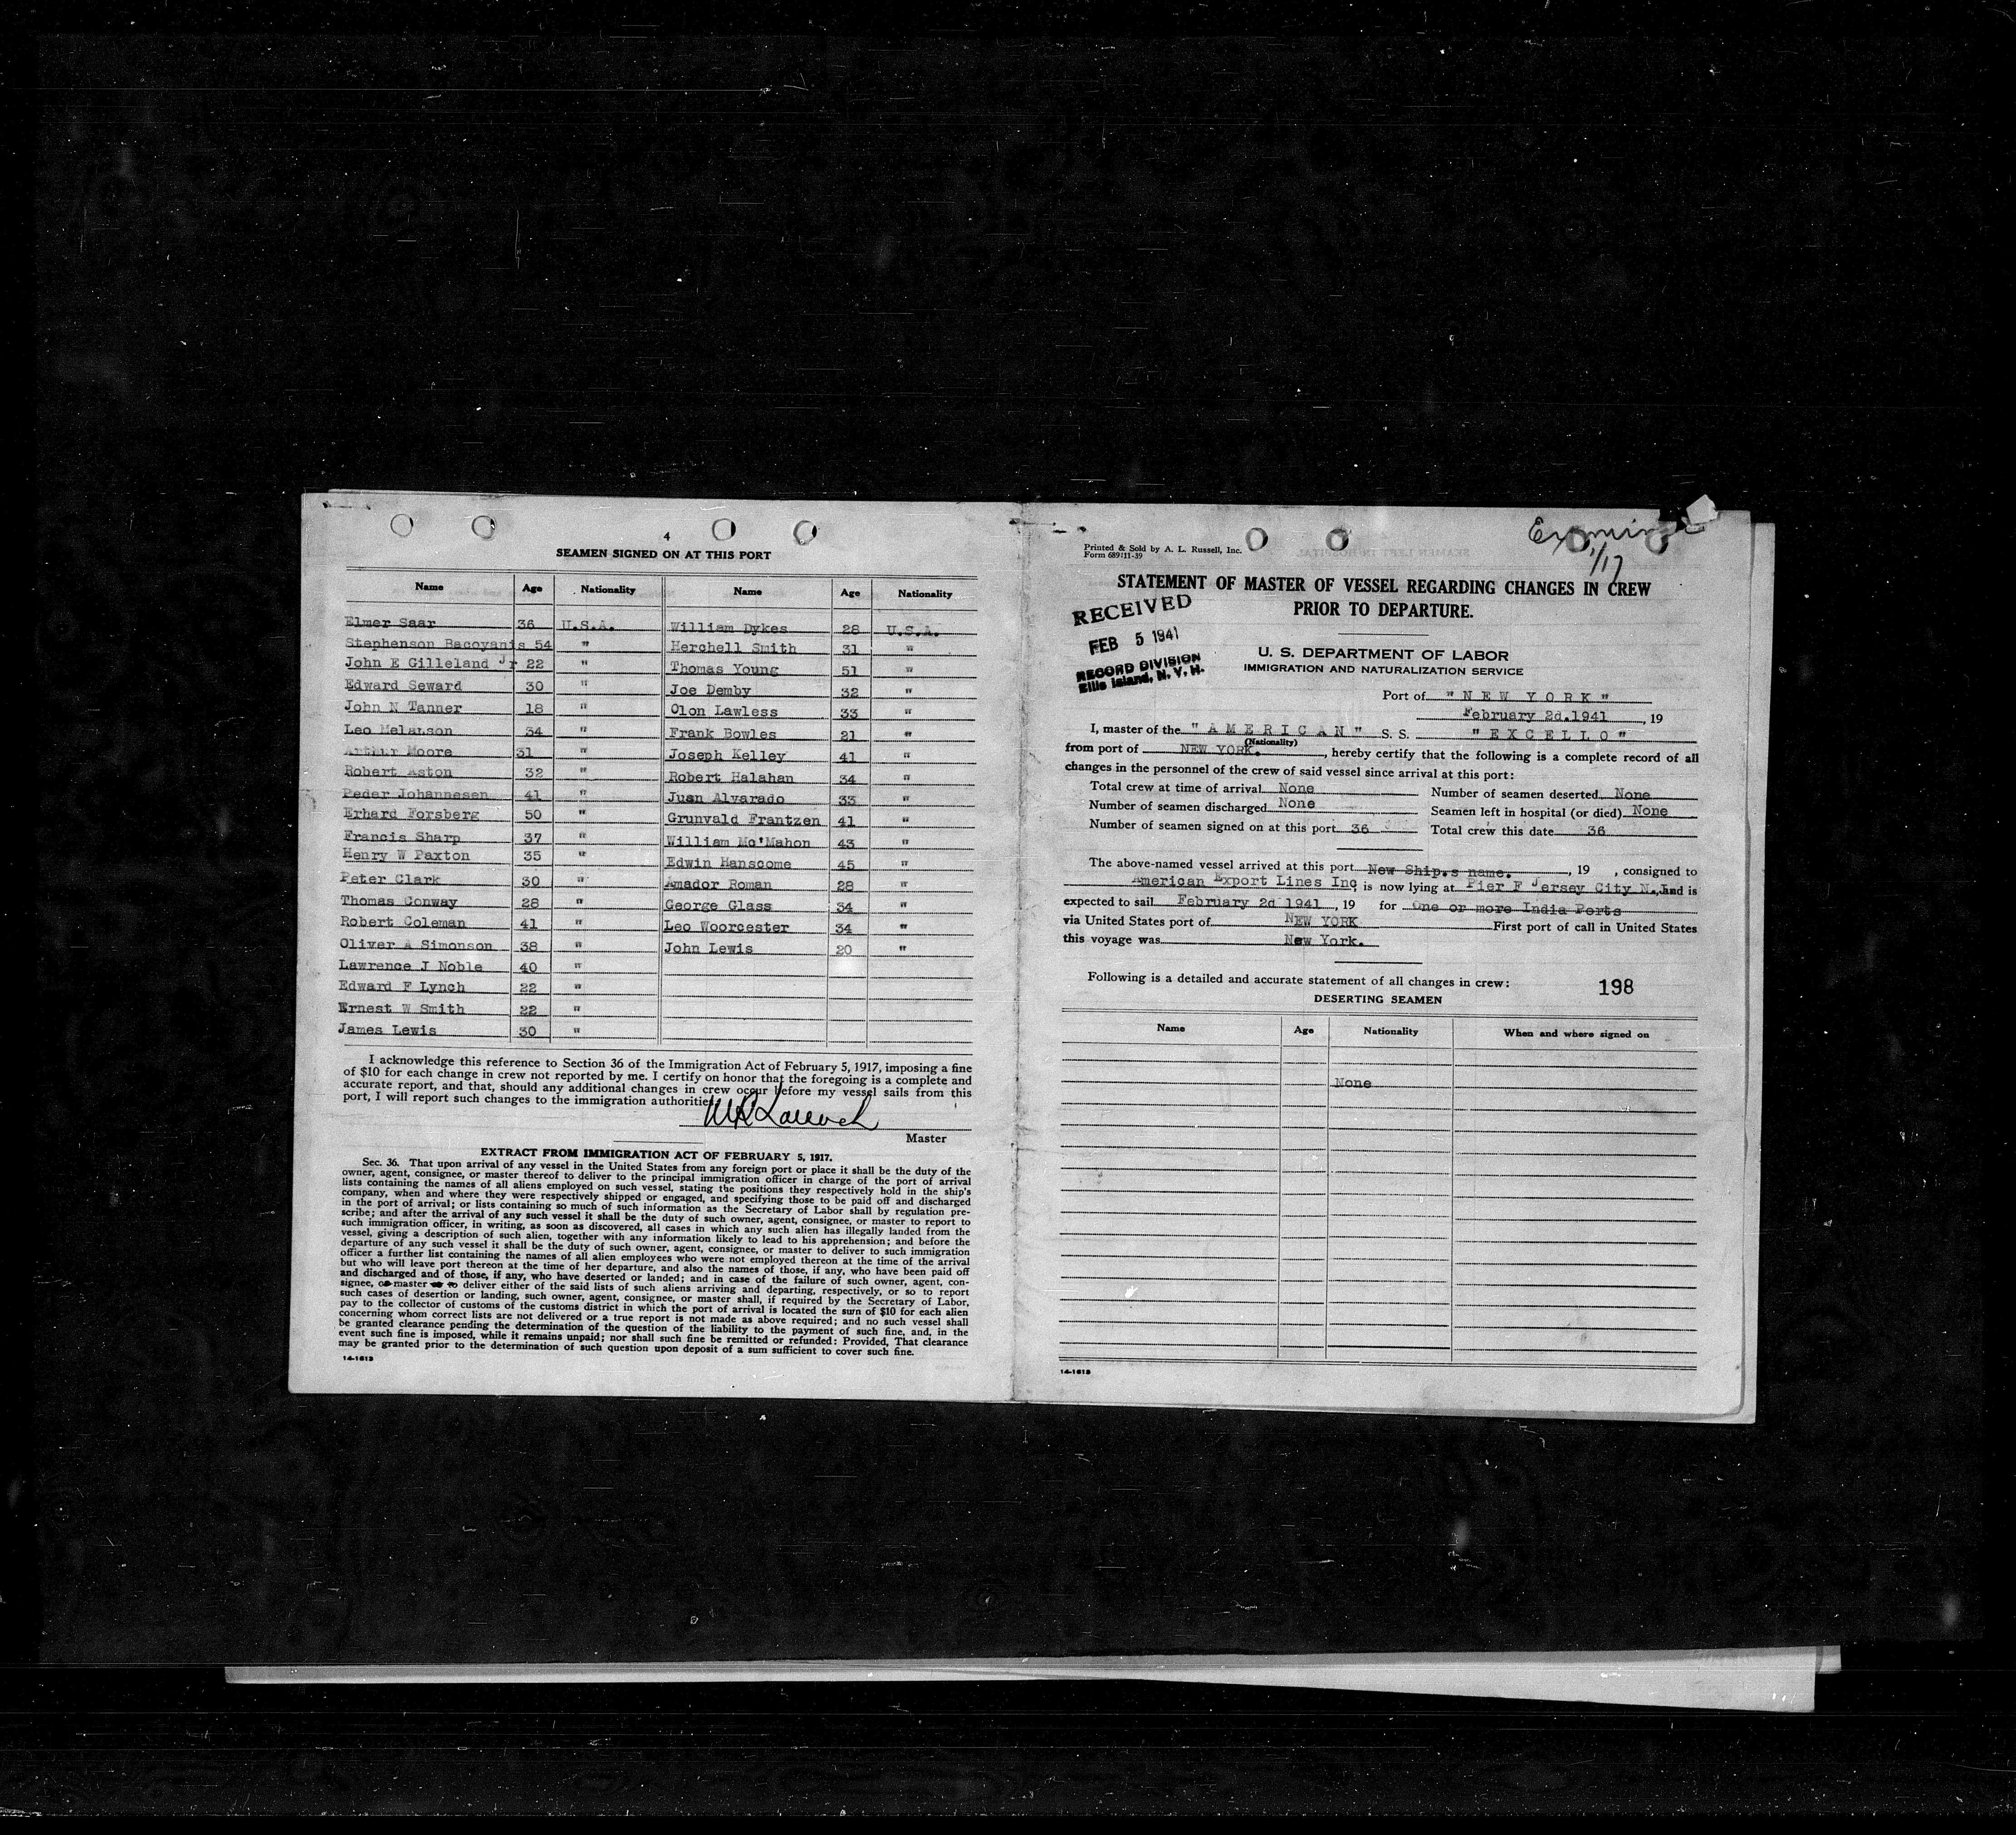 4
SEAMEN SIGNED ON AT THIS PORT
Name Age Nationality Name Age Nationality
Elmer Saar 36 U.S.A. William Dykes 28 U.S.A.
Stephenson Bacoyanis 54 " Herchell Smith 31 "
John E Gilleland Jr 22 " Thomas Young 51 "
Edward Seward 30 " Joe Demby 32 "
John N Tanner 18 " Olon Lawless 33 "
Leo Melanson 34 " Frank Bowles 21 "
Arthur Moore 31 " Joseph Kelley 41 "
Robert Aston 32 " Robert Halahan 34 "
Peder Johannesen 41 " Juan Alvarado 33 "
Erhard Forsberg 50 " Grunvald Frantzen 41 "
Francis Sharp 37 " William Mc'Mahon 43 "
Henry W Paxton 35 " Edwin Hanscome 45 "
Peter Clark 30 " Amador Roman 28 "
Thomas Conway 28 " George Glass 34 "
Robert Coleman 41 " Leo Woorcester 34 "
Oliver A Simonson 38 " John Lewis 20 "
Lawrence J Noble 40 "
Edward F Lynch 22 "
Ernest W Smith 22 "
James Lewis 30 "
I acknowledge this reference to Section 36 of the Immigration Act of February 5, 1917, imposing a fine
of $10 for each change in crew not reported by me. I certify on honor that the foregoing is a complete and
accurate report, and that, should any additional changes in crew occur before my vessel sails from this
port, I will report such changes to the immigration authorities.
Master
EXTRACT FROM IMMIGRATION ACT OF FEBRUARY 5, 1917.
Sec. 36. That upon arrival of any vessel in the United States from any foreign port or place it shall be the duty of the
owner, agent, consignee, or master thereof to deliver to the principal immigration officer in charge of the port of arrival
lists containing the names of all aliens employed on such vessel, stating the positions they respectively hold in the ship's
company, when and where they were respectively shipped or engaged, and specifying those to be paid off and discharged
in the port of arrival; or lists containing so much of such information as the Secretary of Labor shall by regulation pre-
scribe; and after the arrival of any such vessel it shall be the duty of such owner, agent, consignee, or master to report to
such immigration officer, in writing, as soon as discovered, all cases in which any such alien has illegally landed from the
vessel, giving a description of such alien, together with any information likely to lead to his apprehension; and before the
departure of any such vessel it shall be the duty of such owner, agent, consignee, or master to deliver to such immigration
officer a further list containing the names of all alien employees who were not employed thereon at the time of the arrival
but who will leave port thereon at the time of her departure, and also the names of those, if any, who have been paid off
and discharged and of those, if any, who have deserted or landed; and in case of the failure of such owner, agent, con-
signee, or master so to deliver either of the said lists of such aliens arriving and departing, respectively, or so to report
such cases of desertion or landing, such owner, agent, consignee, or master shall, if required by the Secretary of Labor,
pay to the collector of customs of the customs district in which the port of arrival is located the sum of $10 for each alien
concerning whom correct lists are not delivered or a true report is not made as above required; and no such vessel shall
be granted clearance pending the determination of the question of the liability to the payment of such fine, and, in the
event such fine is imposed, while it remains unpaid; nor shall such fine be remitted or refunded: Provided, That clearance
may be granted prior to the determination of such question upon deposit of a sum sufficient to cover such fine.
14-1613
Examined
1/17
Printed & Sold by A. L. Russell, Inc.
Form 689:11-39
STATEMENT OF MASTER OF VESSEL REGARDING CHANGES IN CREW
PRIOR TO DEPARTURE.
RECEIVED
FEB 5 1941
RECORD DIVISION
Ellis Island, N. Y. H.
U. S. DEPARTMENT OF LABOR
IMMIGRATION AND NATURALIZATION SERVICE
Port of "NEW YORK"
February 2d.1941, 19
I, master of the "AMERICAN" S. S. "EXCELLO"
(Nationality)
from port of NEW YORK., hereby certify that the following is a complete record of all
changes in the personnel of the crew of said vessel since arrival at this port:
Total crew at time of arrival None Number of seamen deserted None
Number of seamen discharged None Seamen left in hospital (or died) None
Number of seamen signed on at this port 36 Total crew this date 36
The above-named vessel arrived at this port New Ship.s name., 19 , consigned to
American Export Lines Inc, is now lying at Pier F Jersey City N.J. and is
expected to sail February 2d 1941, 19 for One or more India Ports
via United States port of NEW YORK First port of call in United States
this voyage was New York.
Following is a detailed and accurate statement of all changes in crew: 198
DESERTING SEAMEN
Name Age Nationality When and where signed on
None
14-1613